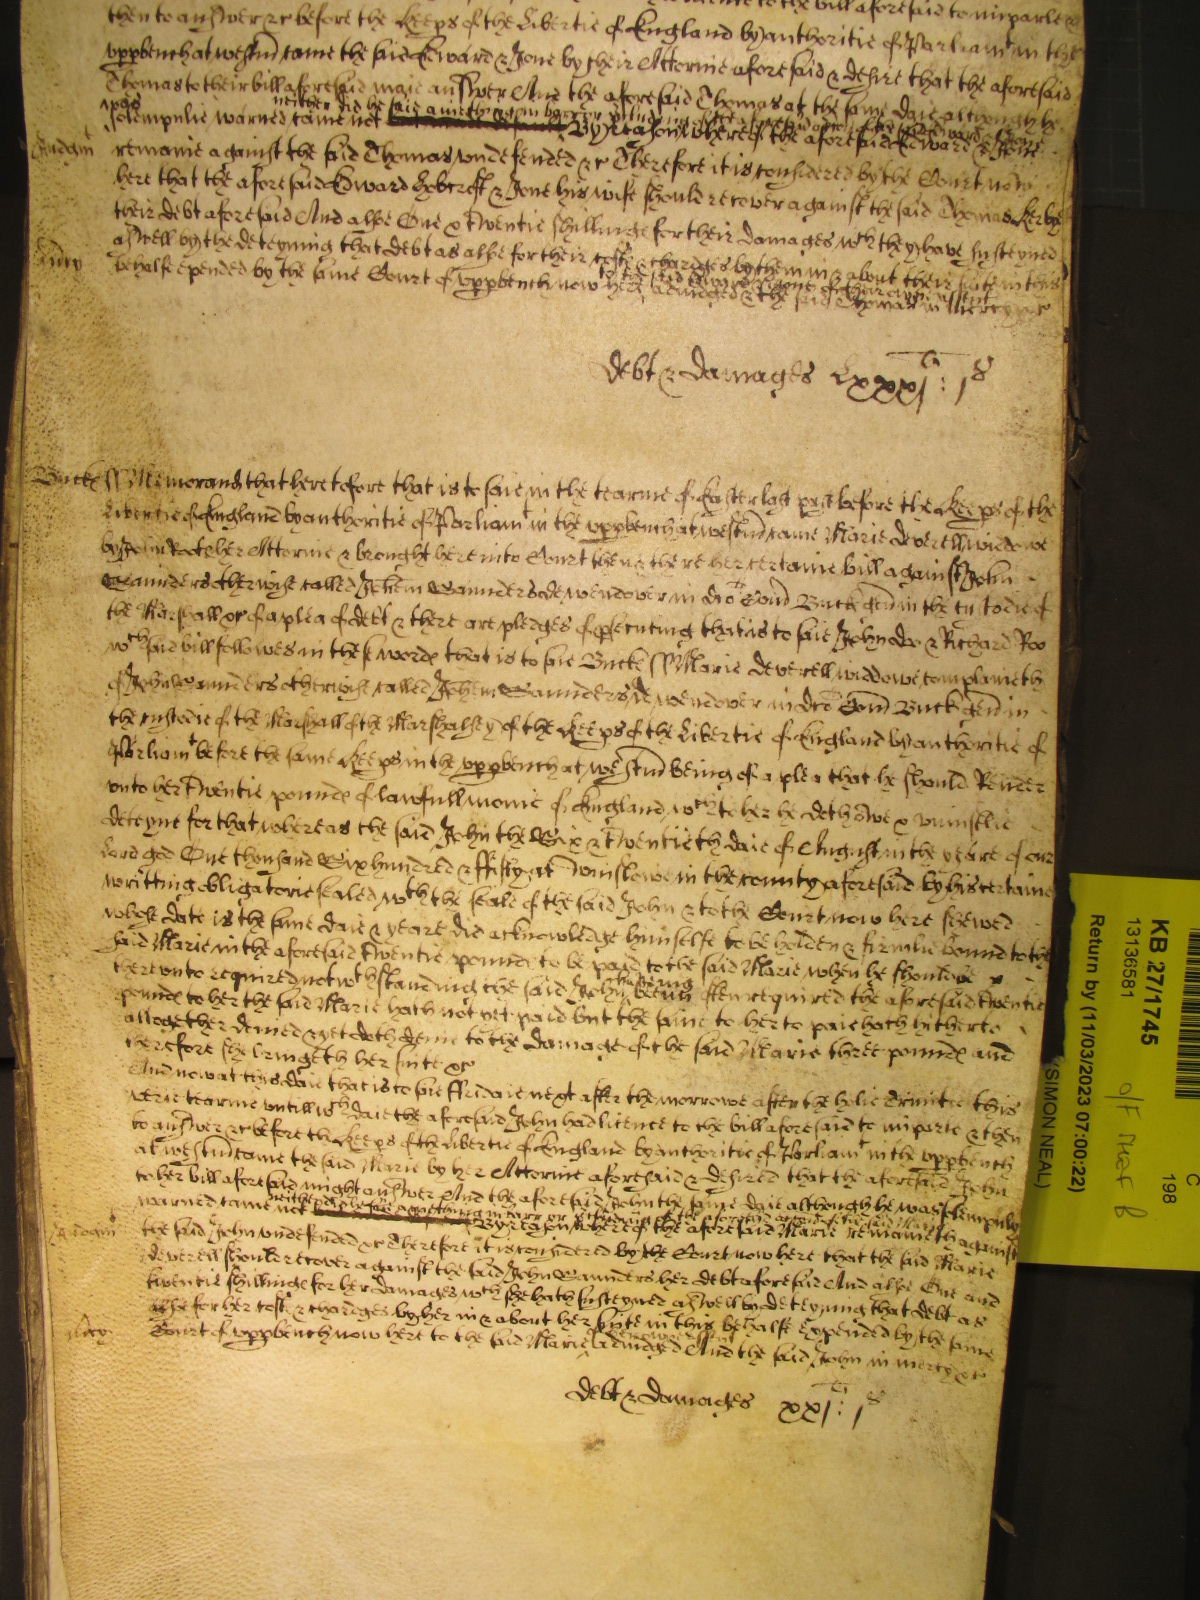 then to answer &c before the Keeps of the Libertie of England by authoritie of Parliamt in the
uppbench at westm came the said Edward & Jone by their Attornie aforesaid & desire that the aforesaid
Thomas to their bill aforesaid maie answer And the aforesaid Thomas at the same daie although he
was
solempnlie warned came not neither did he saie anything in barr By reason whereof the aforesaid Edward & Jone
Judgmt remaine against the said Thomas undefended &c Therefore it is considered by the Court now
here that the aforesaid Edward & Jone his wife should recover against the said Thomas Kerby
their debt aforesaid And alsoe One & Twentie shillinge for their damages wch they have susteyned
aswell by the deteyning that debt as alsoe for their costs & chardges by them in & about their suite in this
mcy behalfe expended by the same Court of uppbench now here adiudged & the said Thomas in Mercy &c
Debt & damages Lxxxjli : js
Buck ss Memorand that heretofore that is to saie in the tearme of Easter last past before the Keeps of the
Libertie of England by authoritie of Parliamt in the uppbench at westm came Marie deverell widdowe
by John Roots her Attornie & brought here into Court then & there her certaine bill against John
Saunders otherwise called John Saunders de wendover in dco Com Buck gen in the custodie of
the Marshall &c of a plea of debt & there are pledges of psecuting that is to saie John doo & Richard Roo
wch said bill followes in these words that is to saie Buck ss Marie deverell widdowe complaineth
of John Saunders otherwise called John Saunders de wendover in dco Com Buck gen in
the custodie of the Marshall of the Marshalsey of the Keeps of the Libertie of England by authoritie of
Parliamt before the same Keeps in the uppbench at westm being of a plea that he should Render
unto her Twentie pounds of lawfull monie of England wch to her he doth owe & uniustlie
deteyne for that whereas the said John the Six & Twentieth daie of August in the yeare of our
Lord god One thousand Six hundred & ffifty at winslowe in the county aforesaid by his certaine
writting obligatorie sealed wth the seale of the said John & to the Court now here shewed
whose date is the same daie & yeare did acknowledge himselfe to be holden & firmlie bound to the
said Marie in the aforesaid Twentie pounds to be paid to the said Marie when he should be
thereunto required notwthstanding the said John although often required the aforesaid Twentie
pounds to her the said Marie hath not yet paid but the same to her to paie hath hitherto
altogether denied & yet doth denie to the damage of the said Marie three pounds and
therefore she bringeth her suite &c
And now at this daie that is to saie ffridaie next after the morrowe after the holie Trinitie this
verie tearme untill wch daie the aforesaid John had licence to the bill aforesaid to imparle & then
to answer &c before the Keeps of the Libertie of England by authoritie of Parliamt in the uppbench
at westm came the said Marie by her Attornie aforesaid & desired that the aforesaid John
to her bill aforesaid might answer And the aforesaid John the same daie although he was solempnly
warned came not neither did he saie anything in barr By reason whereof the aforesaid Marie remaineth against
Judgmt the said John undefended &c Therefore it is considered by the Court now here that the said Marie
deverell should recover against the said John Saunders her debt aforesaid And alsoe One and
twentie shillinge for her damages wch she hath susteyned aswell by deteyning that debt as
alsoe for her costs & chardges by her in & about her suite in this behalfe expended by the same
mcy Court of uppbench now here to the said Marie adiudged And the said John in mercy &c
Debt & damages xxjli : js
KB 27/1745
13136581
Return by (11/03/2023 07:00:22)
(SIMON NEAL)
C
198